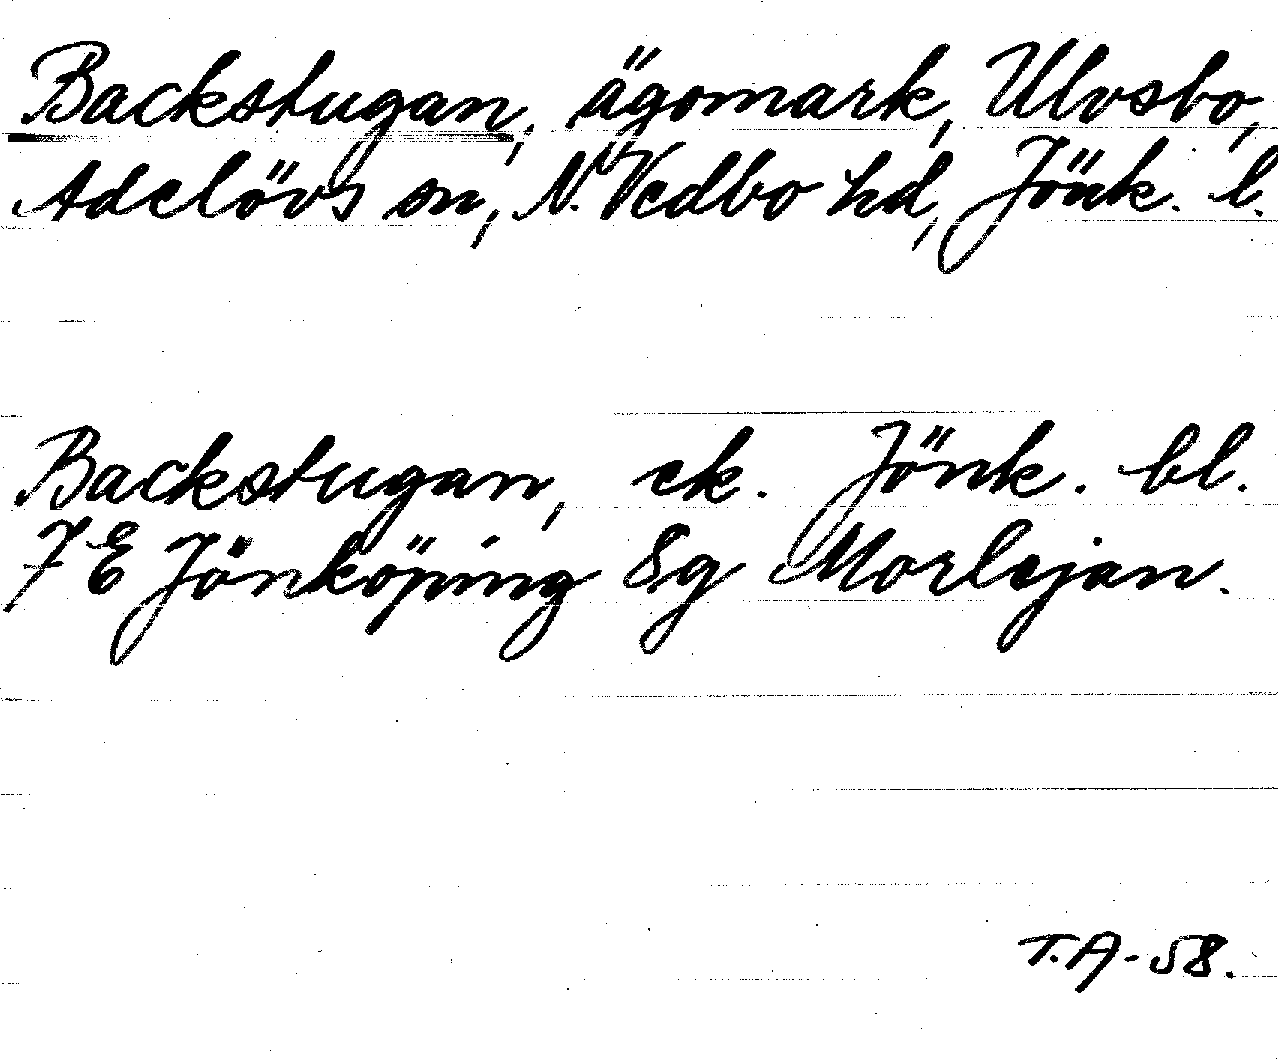 Backstugan, ägomark, Ulvsbo,
Adelövs sn, N. Vedbo hd, Jönk. l.
Backstugan, ek. Jönk. bl.
7 E Jönköping Sg Morlejan.
T.A-58.